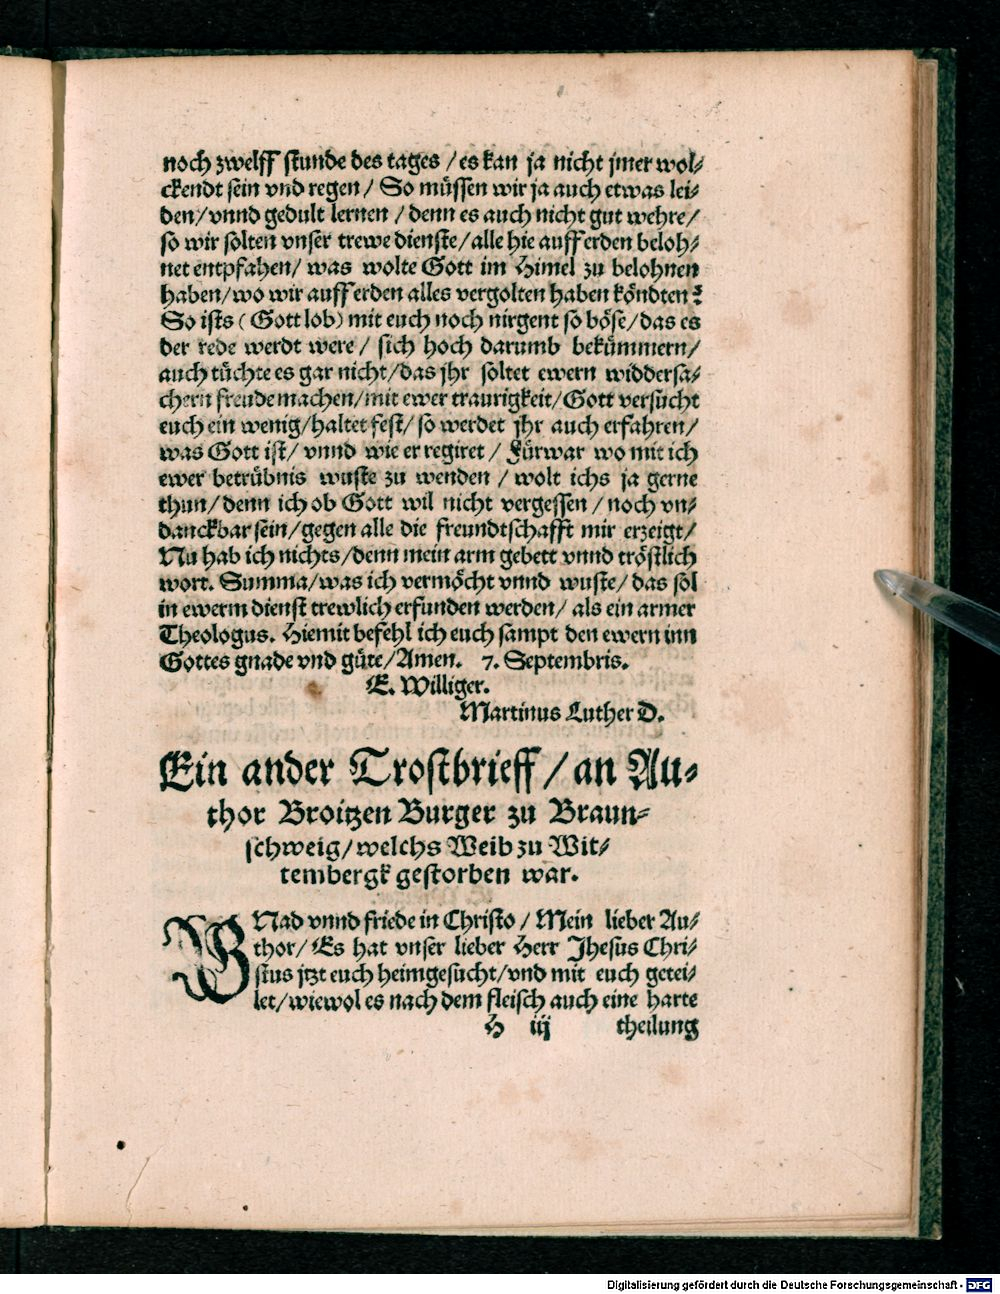 noch zwelff stunde des tages / es kan ja nicht jmer wol-
ckendt sein vnd regen / So müssen wir ja auch etwas lei-
den / vnnd gedult lernen / denn es auch nicht gut wehre /
so wir solten vnser trewe dienste / alle hie auff erden beloh-
net entpfahen / was wolte Gott im Himel zu belohnen
haben / wo wir auff erden alles vergolten haben köndten?
So ists ( Gott lob) mit euch noch nirgent so böse / das es
der rede werdt were / sich hoch darumb bekümmern /
auch tüchte es gar nicht / das jhr soltet ewern widdersa-
chern freude machen / mit ewer traurigkeit / Gott versucht
euch ein wenig / haltet fest / so werdet jhr auch erfahren /
was Gott ist / vnnd wie er regiret / Fürwar wo mit ich
ewer betrübnis wuste zu wenden / wolt ichs ja gerne
thun / denn ich ob Gott wil nicht vergessen / noch vn-
danckbar sein / gegen alle die freundtschafft mir erzeigt /
Nu hab ich nichts / denn mein arm gebett vnnd tröstlich
wort. Summa / was ich vermöcht vnnd wuste / das sol
in ewerm dienst trewlich erfunden werden / als ein armer
Theologus. Hiemit befehl ich euch sampt den ewern inn
Gottes gnade vnd güte / Amen. 7. Septembris.
E. Williger.
Martinus Luther D.
Ein ander Trostbrieff / an Au-
thor Broitzen Burger zu Braun-
schweig / welchs Weib zu Wit-
tembergk gestorben war.
GNad vnnd friede in Christo / Mein lieber Au-
thor / Es hat vnser lieber Herr Jhesus Chri-
stus jtzt euch heimgesucht / vnd mit euch getei-
let / wiewol es nach dem fleisch auch eine harte
H iij theilung
Digitalisierung gefördert durch die Deutsche Forschungsgemeinschaft - DFG